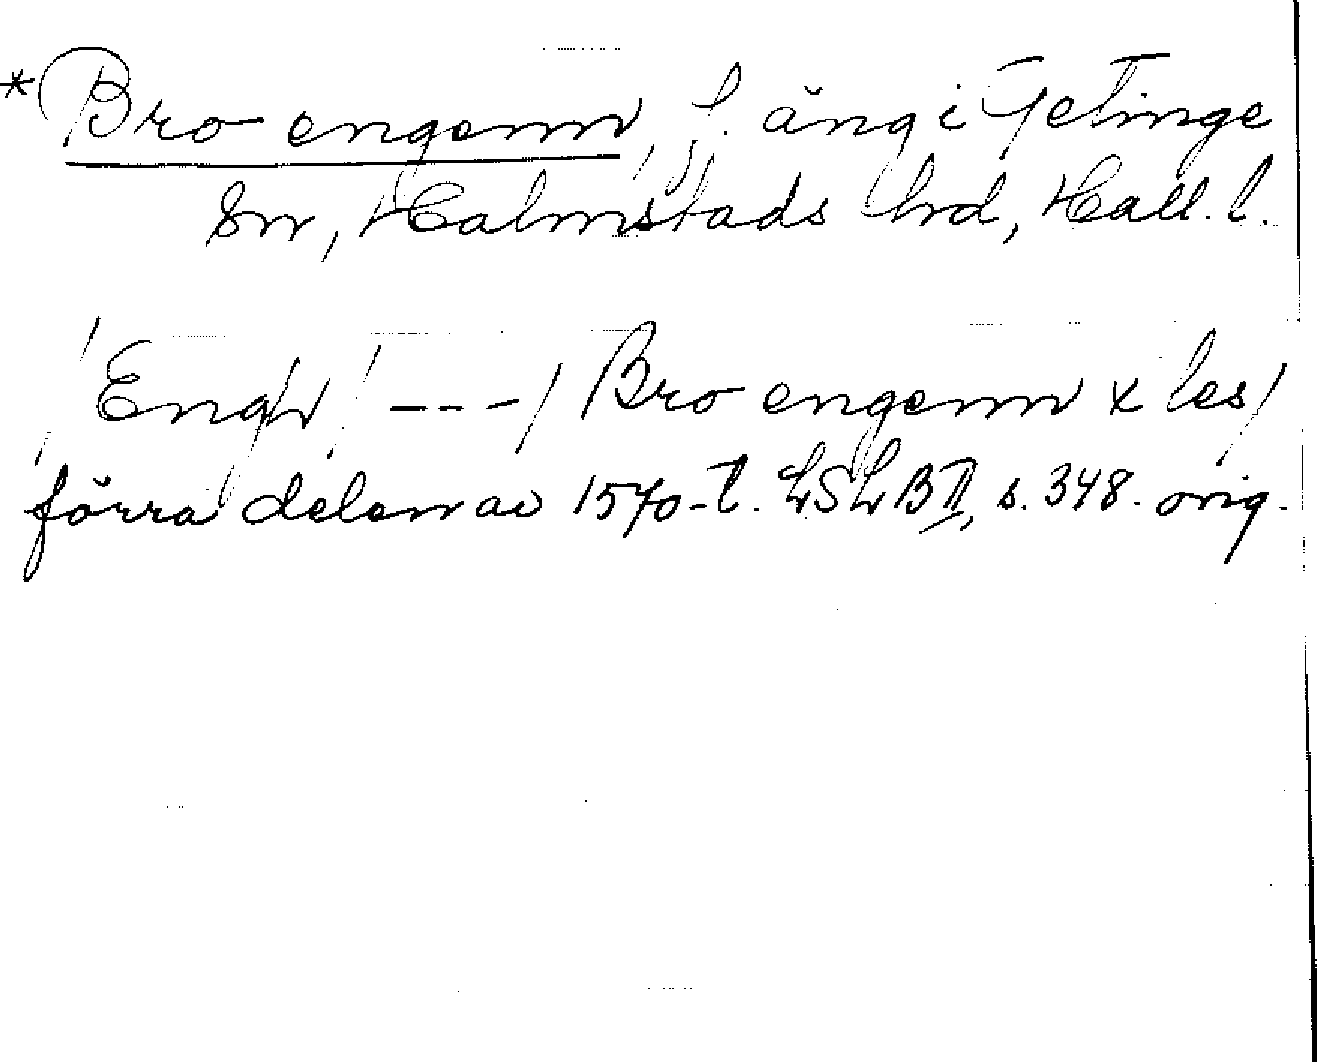 * Bro engenn, f. äng i Getinge
sn, Halmstads hrd, Hall. l.
/Engh/ --- / Bro engenn x les/
förra delen av 1570-t. LSLB II, s. 348. orig.